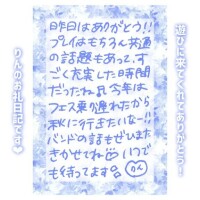 遊びに来てくれてありがとう!
昨日はありがとう!!
プレイはもちろん共通
の話題もあって、す
ごく充実した時間
だったね♫今年は
フェス乗り遅れたから
秋に行きたいなー!!
バンドの話もぜひまた
きかせてね いつで
も待ってます
りんのお礼日記です♥